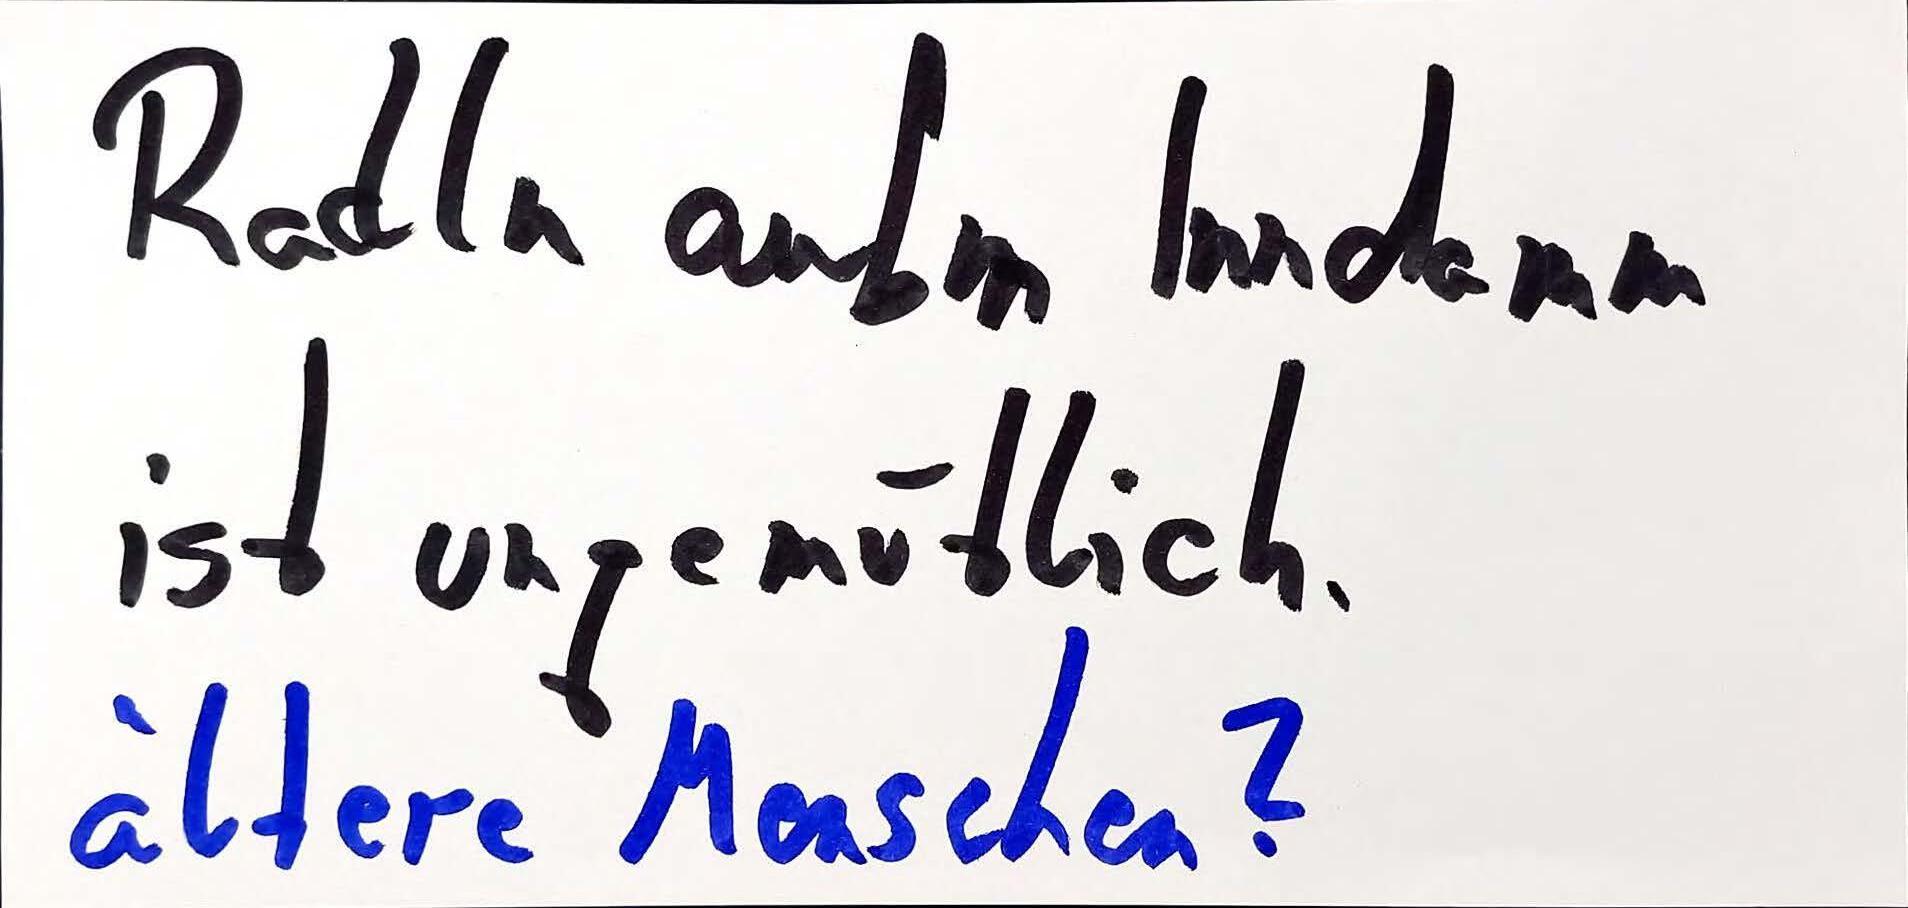 Radln aufm Inndamm
ist ungemütlich.
ältere Menschen?